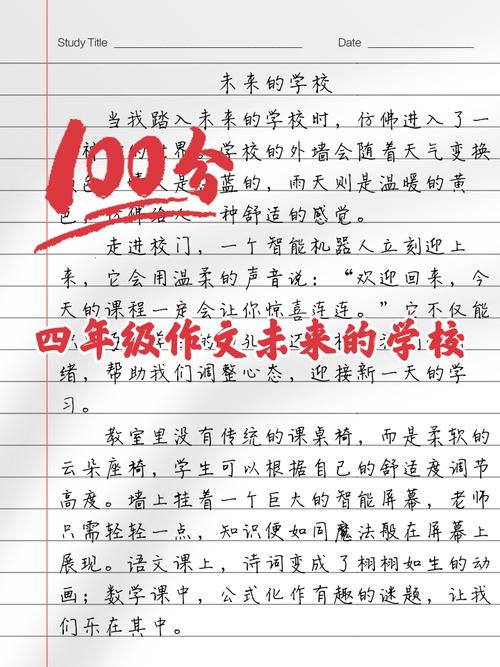 Study Title
Date
未来的学校
当我踏入未来的学校时，仿佛进入了一
世界。学校的外墙会随着天气变换
蓝的，雨天则是温暖的黄
种舒适的感觉。
100分
走进校门，一个智能机器人立刻迎上
来，它会用温柔的声音说：“欢迎回来，今
天的课程一定会让你惊喜连连。”它不仅能
四年级作文未来的学校
绪，帮助我们调整心态，迎接新一天的学
习。
教室里没有传统的课桌椅，而是柔软的
云朵座椅，学生可以根据自己的舒适度调节
高度。墙上挂着一个巨大的智能屏幕，老师
只需轻轻一点，知识便如同魔法般在屏幕上
展现。语文课上，诗词变成了栩栩如生的动
画；数学课中，公式化作有趣的谜题，让我
们乐在其中。